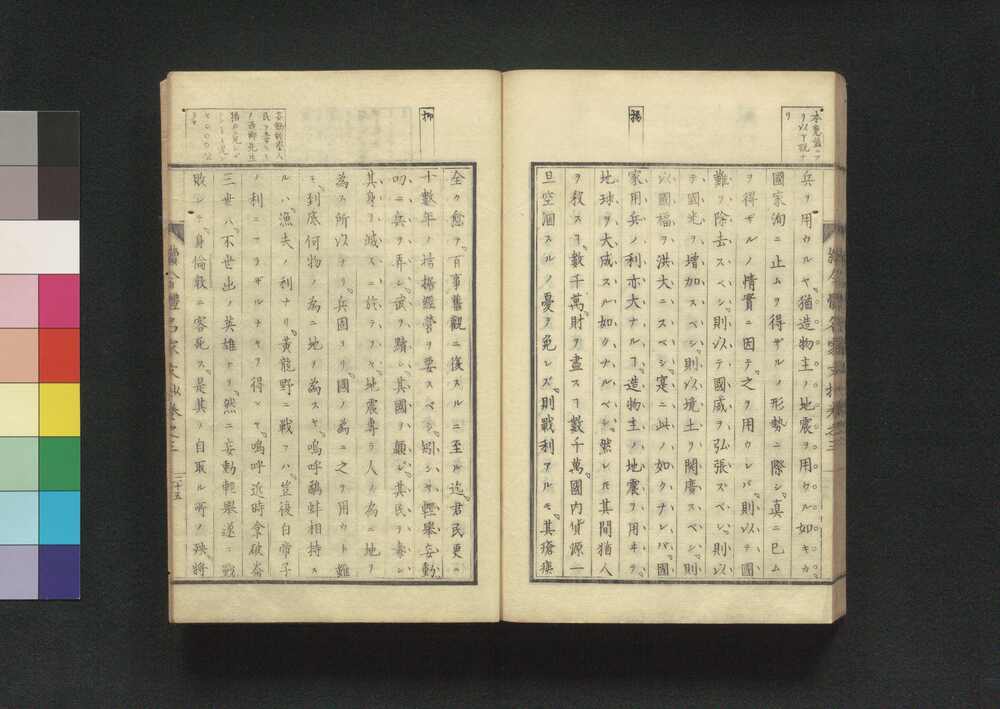 兵ヲ用ウルヤ。猶造物主ノ地震ヲ用ウル如キカ
國家洵ニ止ムヲ得ザルノ形勢ニ際シ。真ニ已ム
ヲ得ギルノ情實ニ因テ。之ヲ用ウレバ。則以テ國
難ヲ除去スベシ。則以テ國威ヲ弘張スベシ。則以
テ國光ヲ増加スベシ。則以境土ヲ闢廣スベシ。則
以國福ヲ洪大ニスベシ。寔ニ此ノ如クナレバ。國
家用兵ノ利亦大ナルヿ。造物主ノ地震ヲ用ヰテ。
地球ヲ大成スル如クナルベシ。然レ𪜈其間猶人
ヲ殺スヿ。數千萬。財ヲ盡スヿ數千萬。國内貨源一
旦空涸スルノ憂ヲ免レズ。則戰利アルモ。其瘡痍
揚
全ク愈テ。百事舊觀ニ復スルニ至ル迄。君民更ニ
十數年ノ拮据經營ヲ要スベシ。矧シヤ輕擧妄動。
叨ニ兵ヲ弄シ。武ヲ黷シ。其國ヲ顛シ。其民ヲ毒シ。
其身ヲ滅スニ於テヲヤ。地震專ラ人ノ為ニ地ヲ
為ス所以ナリ。兵固ヨリ。國ノ為ニ之ヲ用ウト雖
モ。到底何物ノ為ニ地ヲ為スヤ。嗚呼鷸蚌相持ス
ルハ。漁夫ノ利ナリ。黄龍野ニ戰フハ。豈後白帝子
ノ利ニアラザルナキヲ得ンヤ。嗚呼近時拿破崙
三世ハ。不世出ノ英雄ナリ。然ニ妄動輕擧遂ニ戰
敗シテ。身倫敦ニ客死ス。是其ノ自取ル所ノ殃將
抑
二十五